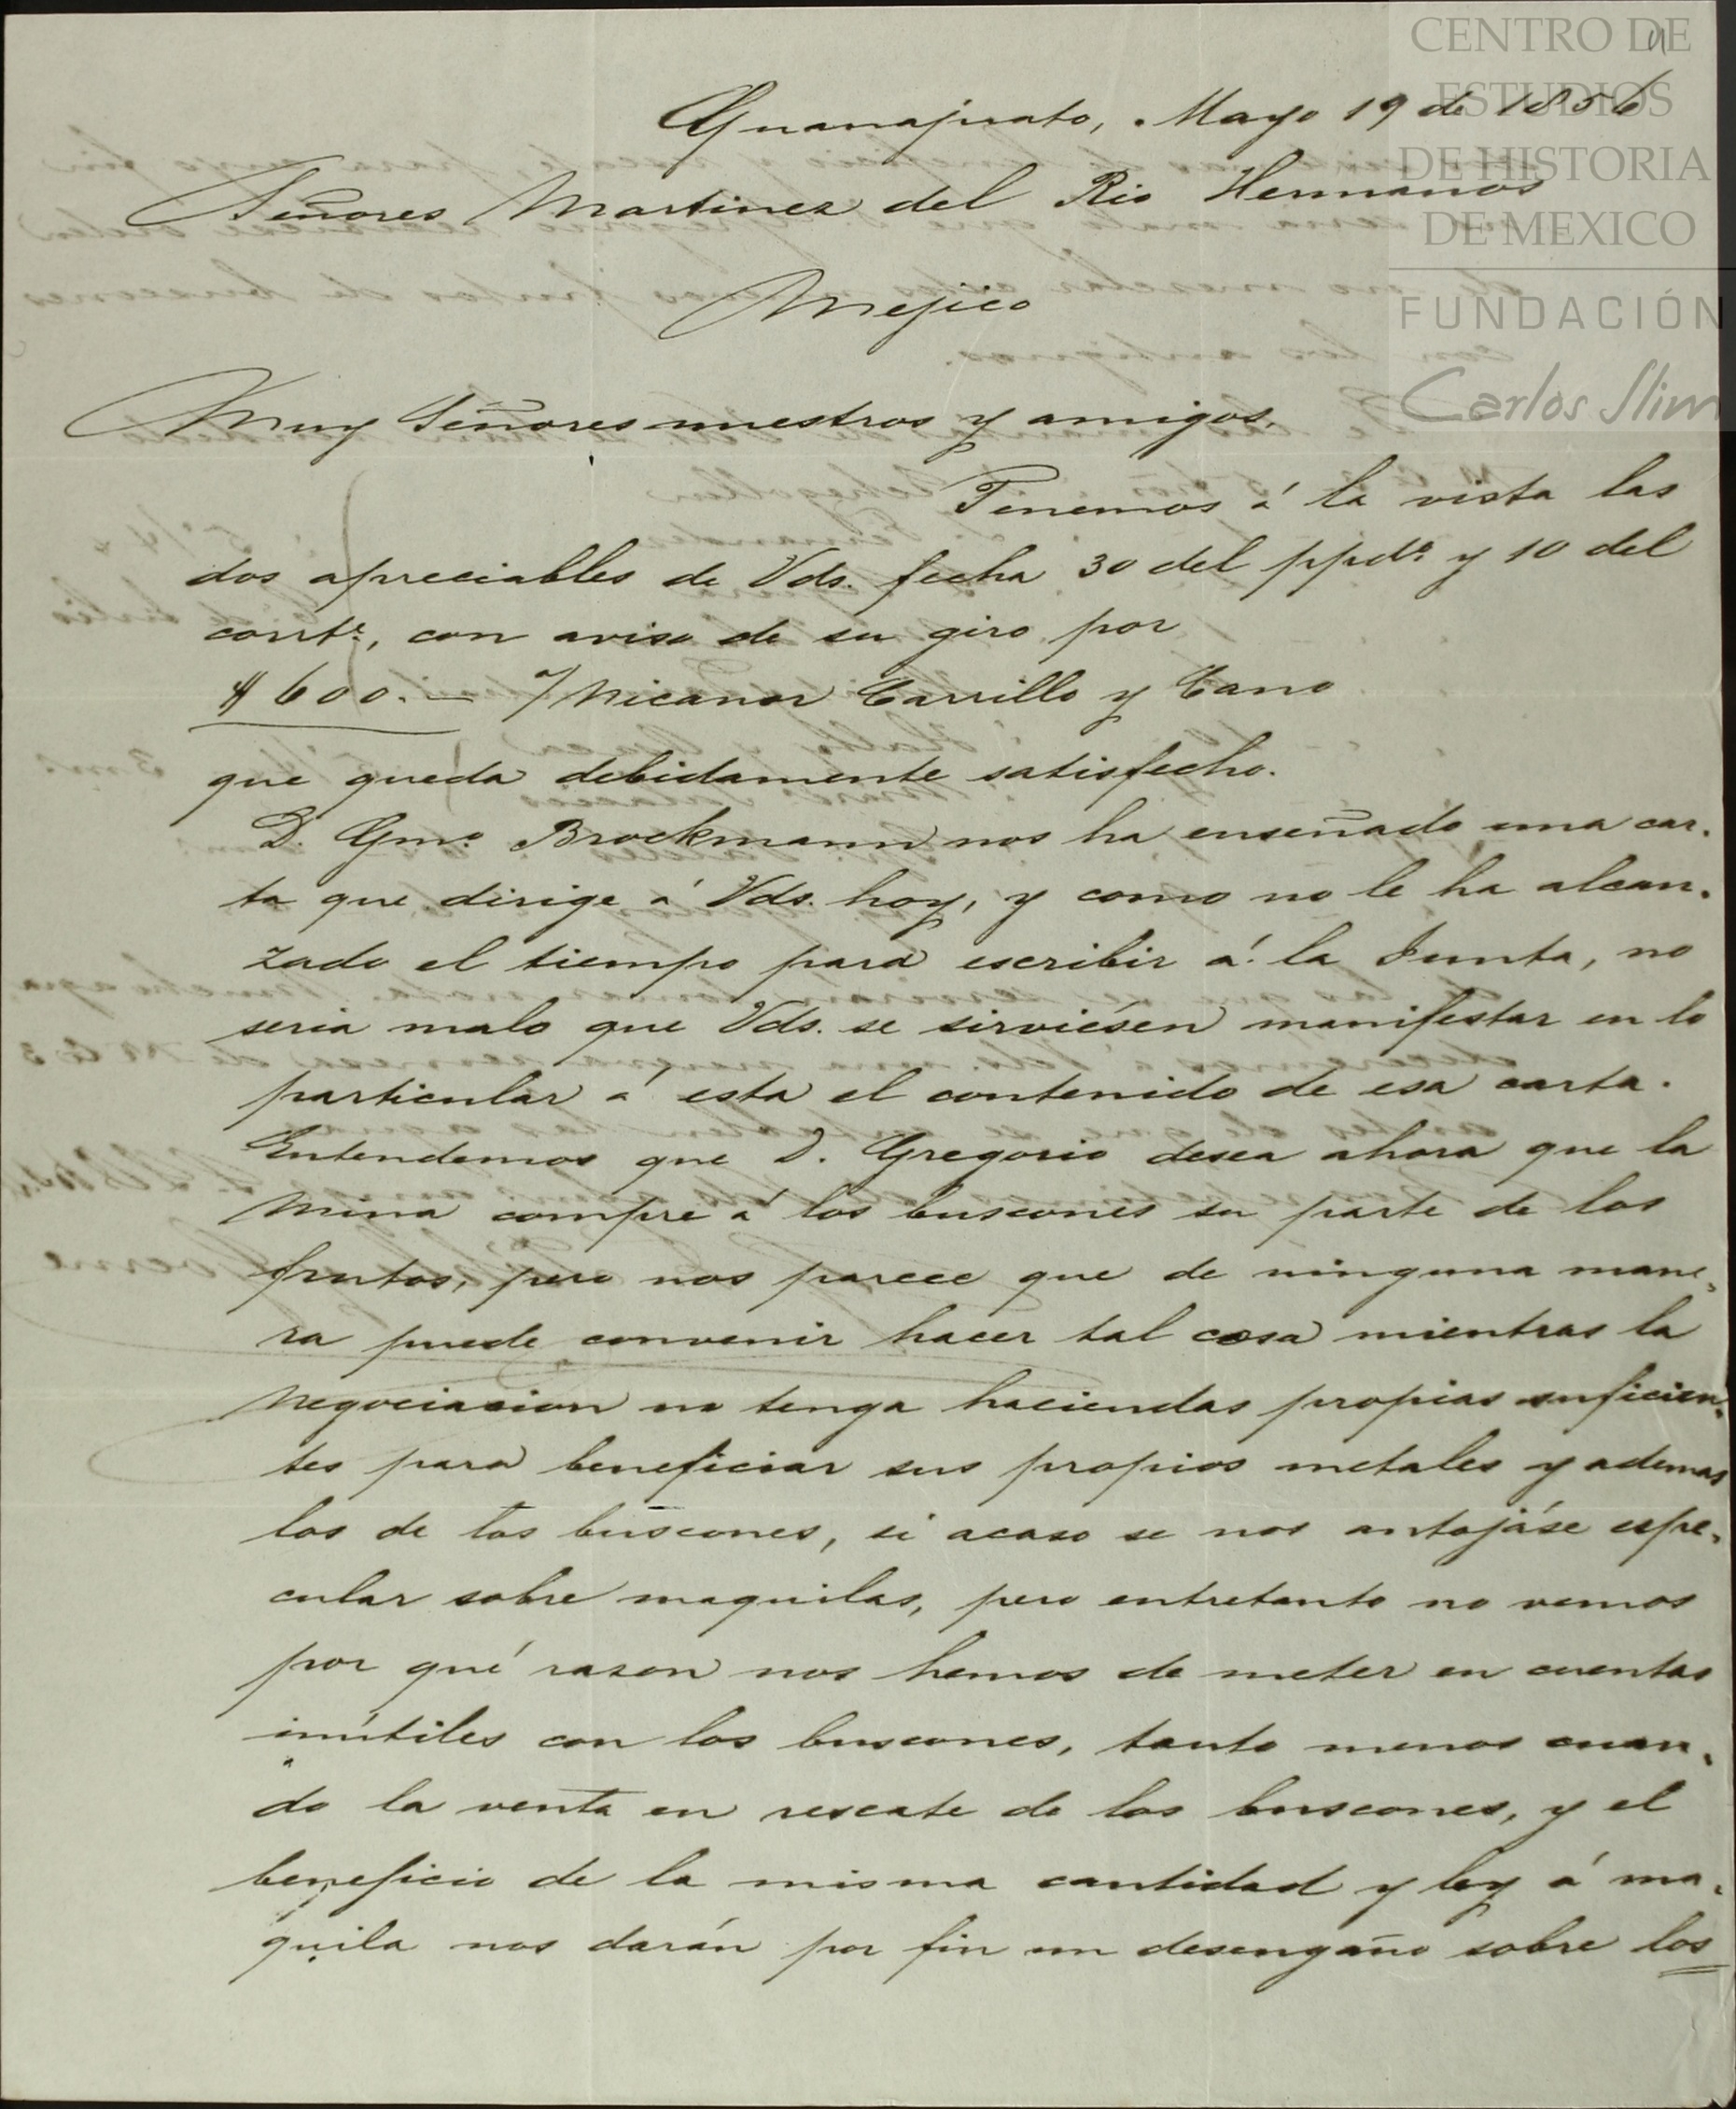 CENTRO DE
ESTUDIOS
DE HISTORIA
DE MEXICO
FUNDACIÓN
Carlos Slim
Guanajuato, Mayo 19 de 1856
Señores Martinez del Rio Hermanos
Mejico
Muy Señores nuestros y amigos,
Tenemos á la vista las
dos apreciables de Vds. fecha 30 del ppdo. y 10 del
corrte., con aviso de su giro por
$ 600.— a/ Nicanor Carrillo y Cano
que queda debidamente satisfecho.
D. Gmo. Brockmann nos ha enseñado una car-
ta que dirige á Vds. hoy, y como no le ha alcan-
zado el tiempo para escribir á la Junta, no
seria malo que Vds. se sirviésen manifestar en lo
particular á esta el contenido de esa carta.
Entendemos que D. Gregorio desea ahora que la
Mina compre á los buscones su parte de los
frutos, pero nos parece que de ninguna mane-
ra puede convenir hacer tal cosa mientras la
Negociacion no tenga haciendas propias suficien-
tes para beneficiar sus propios metales y ademas
los de los buscones, si acaso se nos antojáse espe-
cular sobre maquilas, pero entretanto no vemos
por qué rason nos hemos de meter en cuentas
inútiles con los buscones, tanto menos cuan-
do la venta en rescate de los buscones, y el
beneficio de la misma cantidad y ley á ma-
quila nos darán por fin un desengaño sobre los